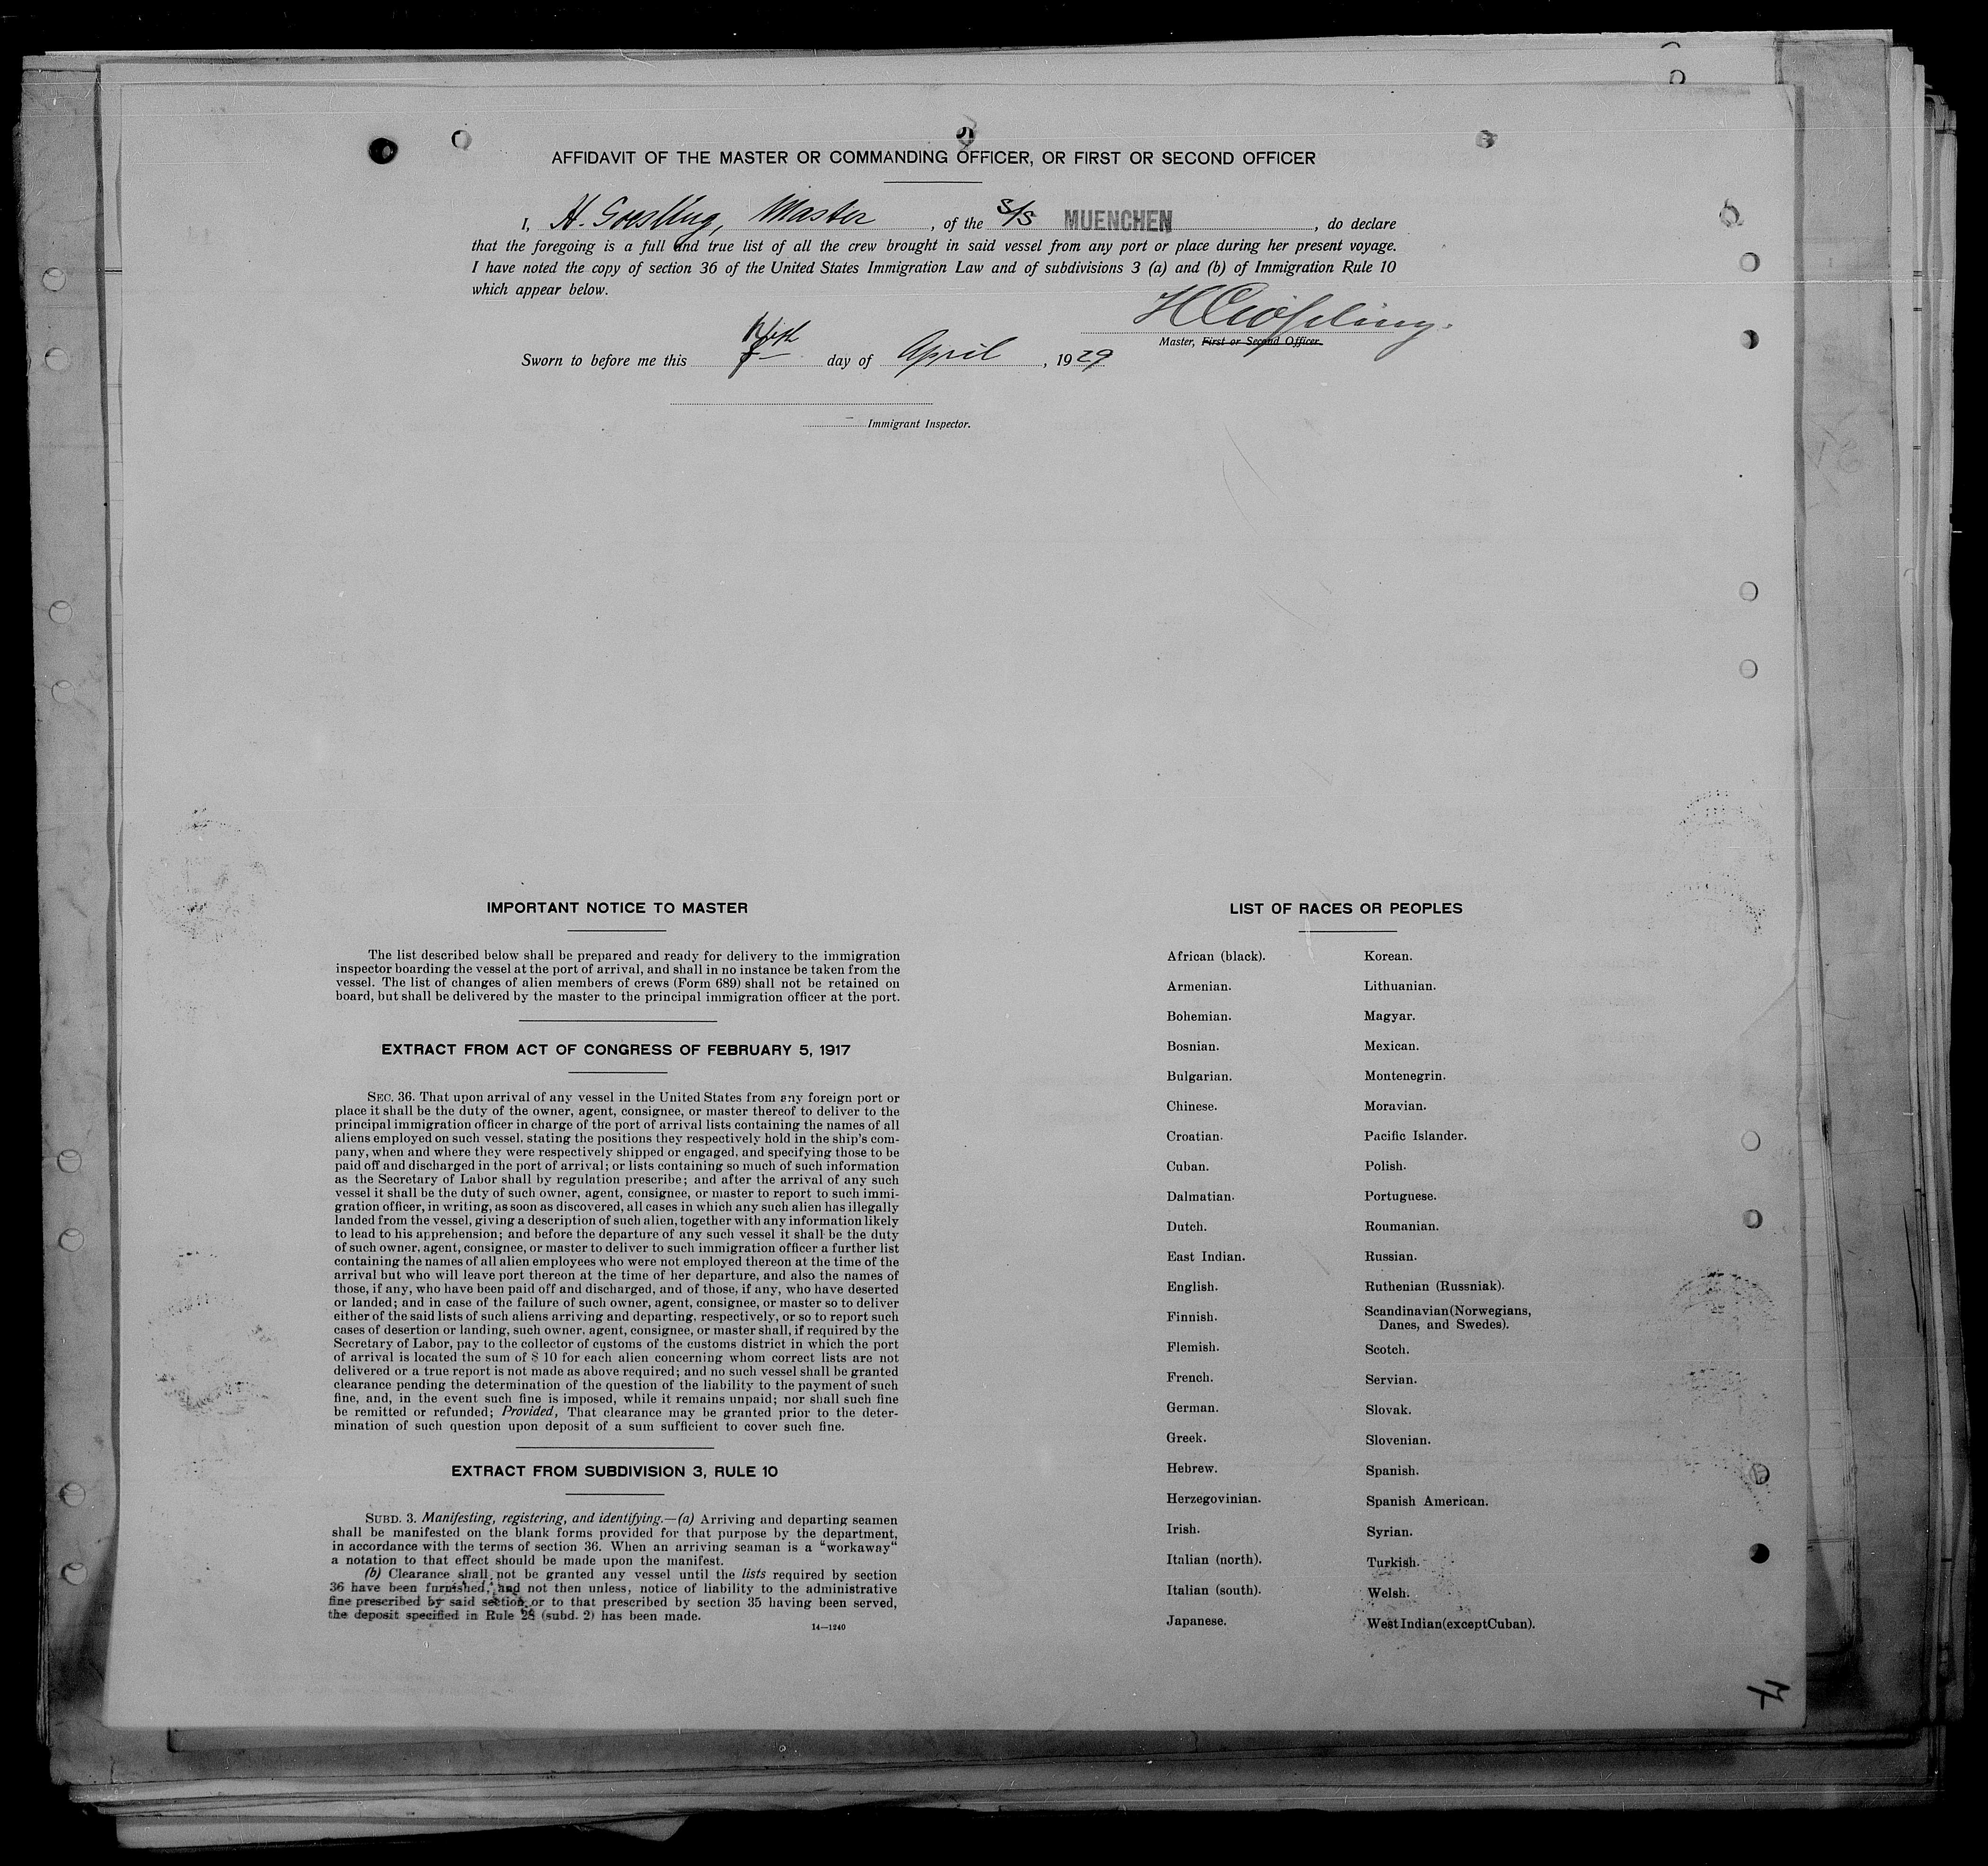 AFFIDAVIT OF THE MASTER OR COMMANDING OFFICER, OR FIRST OR SECOND OFFICER
I, H. Goessling, Master, of the S/S MUENCHEN, do declare
that the foregoing is a full and true list of all the crew brought in said vessel from any port or place during her present voyage.
I have noted the copy of section 36 of the United States Immigration Law and of subdivisions 3 (a) and (b) of Immigration Rule 10
which appear below.
Master, First or Second Officer.
Sworn to before me this day of April, 1929
Immigrant Inspector.
IMPORTANT NOTICE TO MASTER
The list described below shall be prepared and ready for delivery to the immigration
inspector boarding the vessel at the port of arrival, and shall in no instance be taken from the
vessel. The list of changes of alien members of crews (Form 689) shall not be retained on
board, but shall be delivered by the master to the principal immigration officer at the port.
EXTRACT FROM ACT OF CONGRESS OF FEBRUARY 5, 1917
SEC. 36. That upon arrival of any vessel in the United States from any foreign port or
place it shall be the duty of the owner, agent, consignee, or master thereof to deliver to the
principal immigration officer in charge of the port of arrival lists containing the names of all
aliens employed on such vessel, stating the positions they respectively hold in the ship's com-
pany, when and where they were respectively shipped or engaged, and specifying those to be
paid off and discharged in the port of arrival; or lists containing so much of such information
as the Secretary of Labor shall by regulation prescribe; and after the arrival of any such
vessel it shall be the duty of such owner, agent, consignee, or master to report to such immi-
gration officer, in writing, as soon as discovered, all cases in which any such alien has illegally
landed from the vessel, giving a description of such alien, together with any information likely
to lead to his apprehension; and before the departure of any such vessel it shall be the duty
of such owner, agent, consignee, or master to deliver to such immigration officer a further list
containing the names of all alien employees who were not employed thereon at the time of the
arrival but who will leave port thereon at the time of her departure, and also the names of
those, if any, who have been paid off and discharged, and of those, if any, who have deserted
or landed; and in case of the failure of such owner, agent, consignee, or master so to deliver
either of the said lists of such aliens arriving and departing, respectively, or so to report such
cases of desertion or landing, such owner, agent, consignee, or master shall, if required by the
Secretary of Labor, pay to the collector of customs of the customs district in which the port
of arrival is located the sum of $ 10 for each alien concerning whom correct lists are not
delivered or a true report is not made as above required; and no such vessel shall be granted
clearance pending the determination of the question of the liability to the payment of such
fine, and, in the event such fine is imposed, while it remains unpaid; nor shall such fine
be remitted or refunded; Provided, That clearance may be granted prior to the deter-
mination of such question upon deposit of a sum sufficient to cover such fine.
EXTRACT FROM SUBDIVISION 3, RULE 10
SUBD. 3. Manifesting, registering, and identifying.—(a) Arriving and departing seamen
shall be manifested on the blank forms provided for that purpose by the department,
in accordance with the terms of section 36. When an arriving seaman is a "workaway"
a notation to that effect should be made upon the manifest.
(b) Clearance shall not be granted any vessel until the lists required by section
36 have been furnished, and not then unless, notice of liability to the administrative
fine prescribed by said section or to that prescribed by section 35 having been served,
the deposit specified in Rule 28 (subd. 2) has been made.
14—1240
LIST OF RACES OR PEOPLES
African (black).
Armenian.
Bohemian.
Bosnian.
Bulgarian.
Chinese.
Croatian.
Cuban.
Dalmatian.
Dutch.
East Indian.
English.
Finnish.
Flemish.
French.
German.
Greek.
Hebrew.
Herzegovinian.
Irish.
Italian (north).
Italian (south).
Japanese.
Korean.
Lithuanian.
Magyar.
Mexican.
Montenegrin.
Moravian.
Pacific Islander.
Polish.
Portuguese.
Roumanian.
Russian.
Ruthenian (Russniak).
Scandinavian (Norwegians,
Danes, and Swedes).
Scotch.
Servian.
Slovak.
Slovenian.
Spanish.
Spanish American.
Syrian.
Turkish.
Welsh.
West Indian (except Cuban).